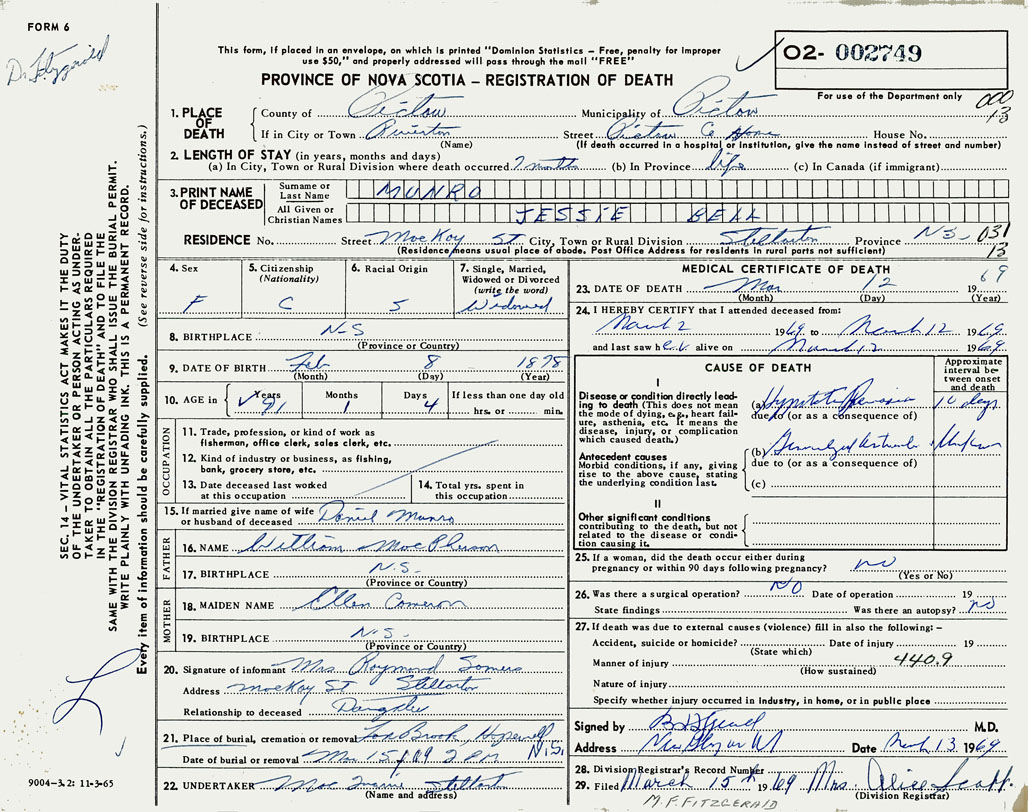 FORM 6
Dr. Fitzgerald
This form, if placed in an envelope, on which is printed "Dominion Statistics – Free, penalty for improper
use $50," and properly addressed will pass through the mail "FREE"
O2- 002749
PROVINCE OF NOVA SCOTIA – REGISTRATION OF DEATH
For use of the Department only
000
13
1. PLACE OF DEATH
County of Pictou Municipality of Pictou
If in City or Town Riverton Street Pictou Co Home House No.
(Name) (If death occurred in a hospital or institution, give the name instead of street and number)
2. LENGTH OF STAY (in years, months and days)
(a) In City, Town or Rural Division where death occurred 7 months (b) In Province life (c) In Canada (if immigrant)
3. PRINT NAME OF DECEASED
Surname or Last Name MUNRO
All Given or Christian Names JESSIE BELL
RESIDENCE No. Street MacKay St City, Town or Rural Division Stellarton Province N.S. 031
(Residence means usual place of abode. Post Office Address for residents in rural parts not sufficient) 13
4. Sex
F
5. Citizenship
(Nationality)
C
6. Racial Origin
5
7. Single, Married,
Widowed or Divorced
(write the word)
Widowed
8. BIRTHPLACE N-S
(Province or Country)
9. DATE OF BIRTH Feb 8 1878
(Month) (Day) (Year)
10. AGE in Years 91 Months 1 Days 4 If less than one day old
hrs. or min.
OCCUPATION
11. Trade, profession, or kind of work as
fisherman, office clerk, sales clerk, etc.
12. Kind of industry or business, as fishing,
bank, grocery store, etc.
13. Date deceased last worked
at this occupation
14. Total yrs. spent in
this occupation
15. If married give name of wife
or husband of deceased Daniel Munro
FATHER
16. NAME William MacPherson
17. BIRTHPLACE N.S.
(Province or Country)
MOTHER
18. MAIDEN NAME Ellen Cameron
19. BIRTHPLACE N-S-
(Province or Country)
20. Signature of informant Mrs Raymond Somers
Address MacKay St Stellarton
Relationship to deceased Daughter
21. Place of burial, cremation or removal Brook Hopewell
Date of burial or removal Mar 15/69 2 PM N.S.
22. UNDERTAKER Stellarton
(Name and address)
MEDICAL CERTIFICATE OF DEATH
23. DATE OF DEATH Mar 12 19 69
(Month) (Day) (Year)
24. I HEREBY CERTIFY that I attended deceased from:
March 2 1969 to March 12 1969
and last saw her alive on March 12 1969
CAUSE OF DEATH
Approximate
interval be-
tween onset
and death
I
Disease or condition directly lead-
ing to death (This does not mean
the mode of dying, e.g., heart fail-
ure, asthenia, etc. It means the
disease, injury, or complication
which caused death.)
(a) Hypostatic Pneumonia 10 days
due to (or as a consequence of)
Antecedent causes
Morbid conditions, if any, giving
rise to the above cause, stating
the underlying condition last.
(b) Generalized
due to (or as a consequence of)
(c)
II
Other significant conditions
contributing to the death, but not
related to the disease or condi-
tion causing it.
25. If a woman, did the death occur either during
pregnancy or within 90 days following pregnancy? no
(Yes or No)
26. Was there a surgical operation? NO Date of operation 19
State findings Was there an autopsy? no
27. If death was due to external causes (violence) fill in also the following: –
Accident, suicide or homicide? Date of injury 19
(State which)
Manner of injury 440.9
(How sustained)
Nature of injury
Specify whether injury occurred in industry, in home, or in public place
Signed by M.D.
Address New Glasgow NS Date March 13 1969
28. Division Registrar's Record Number
29. Filed March 15th 1969 Mrs Alice Scott
(Division Registrar)
M.F. FITZGERALD
SEC. 14 – VITAL STATISTICS ACT MAKES IT THE DUTY
OF THE UNDERTAKER OR PERSON ACTING AS UNDER-
TAKER TO OBTAIN ALL THE PARTICULARS REQUIRED
IN THE "REGISTRATION OF DEATH" AND TO FILE THE
SAME WITH THE DIVISION REGISTRAR WHO SHALL ISSUE THE BURIAL PERMIT.
WRITE PLAINLY WITH UNFADING INK. THIS IS A PERMANENT RECORD.
Every item of information should be carefully supplied. (See reverse side for instructions.)
9004-3.2: 11-3-65